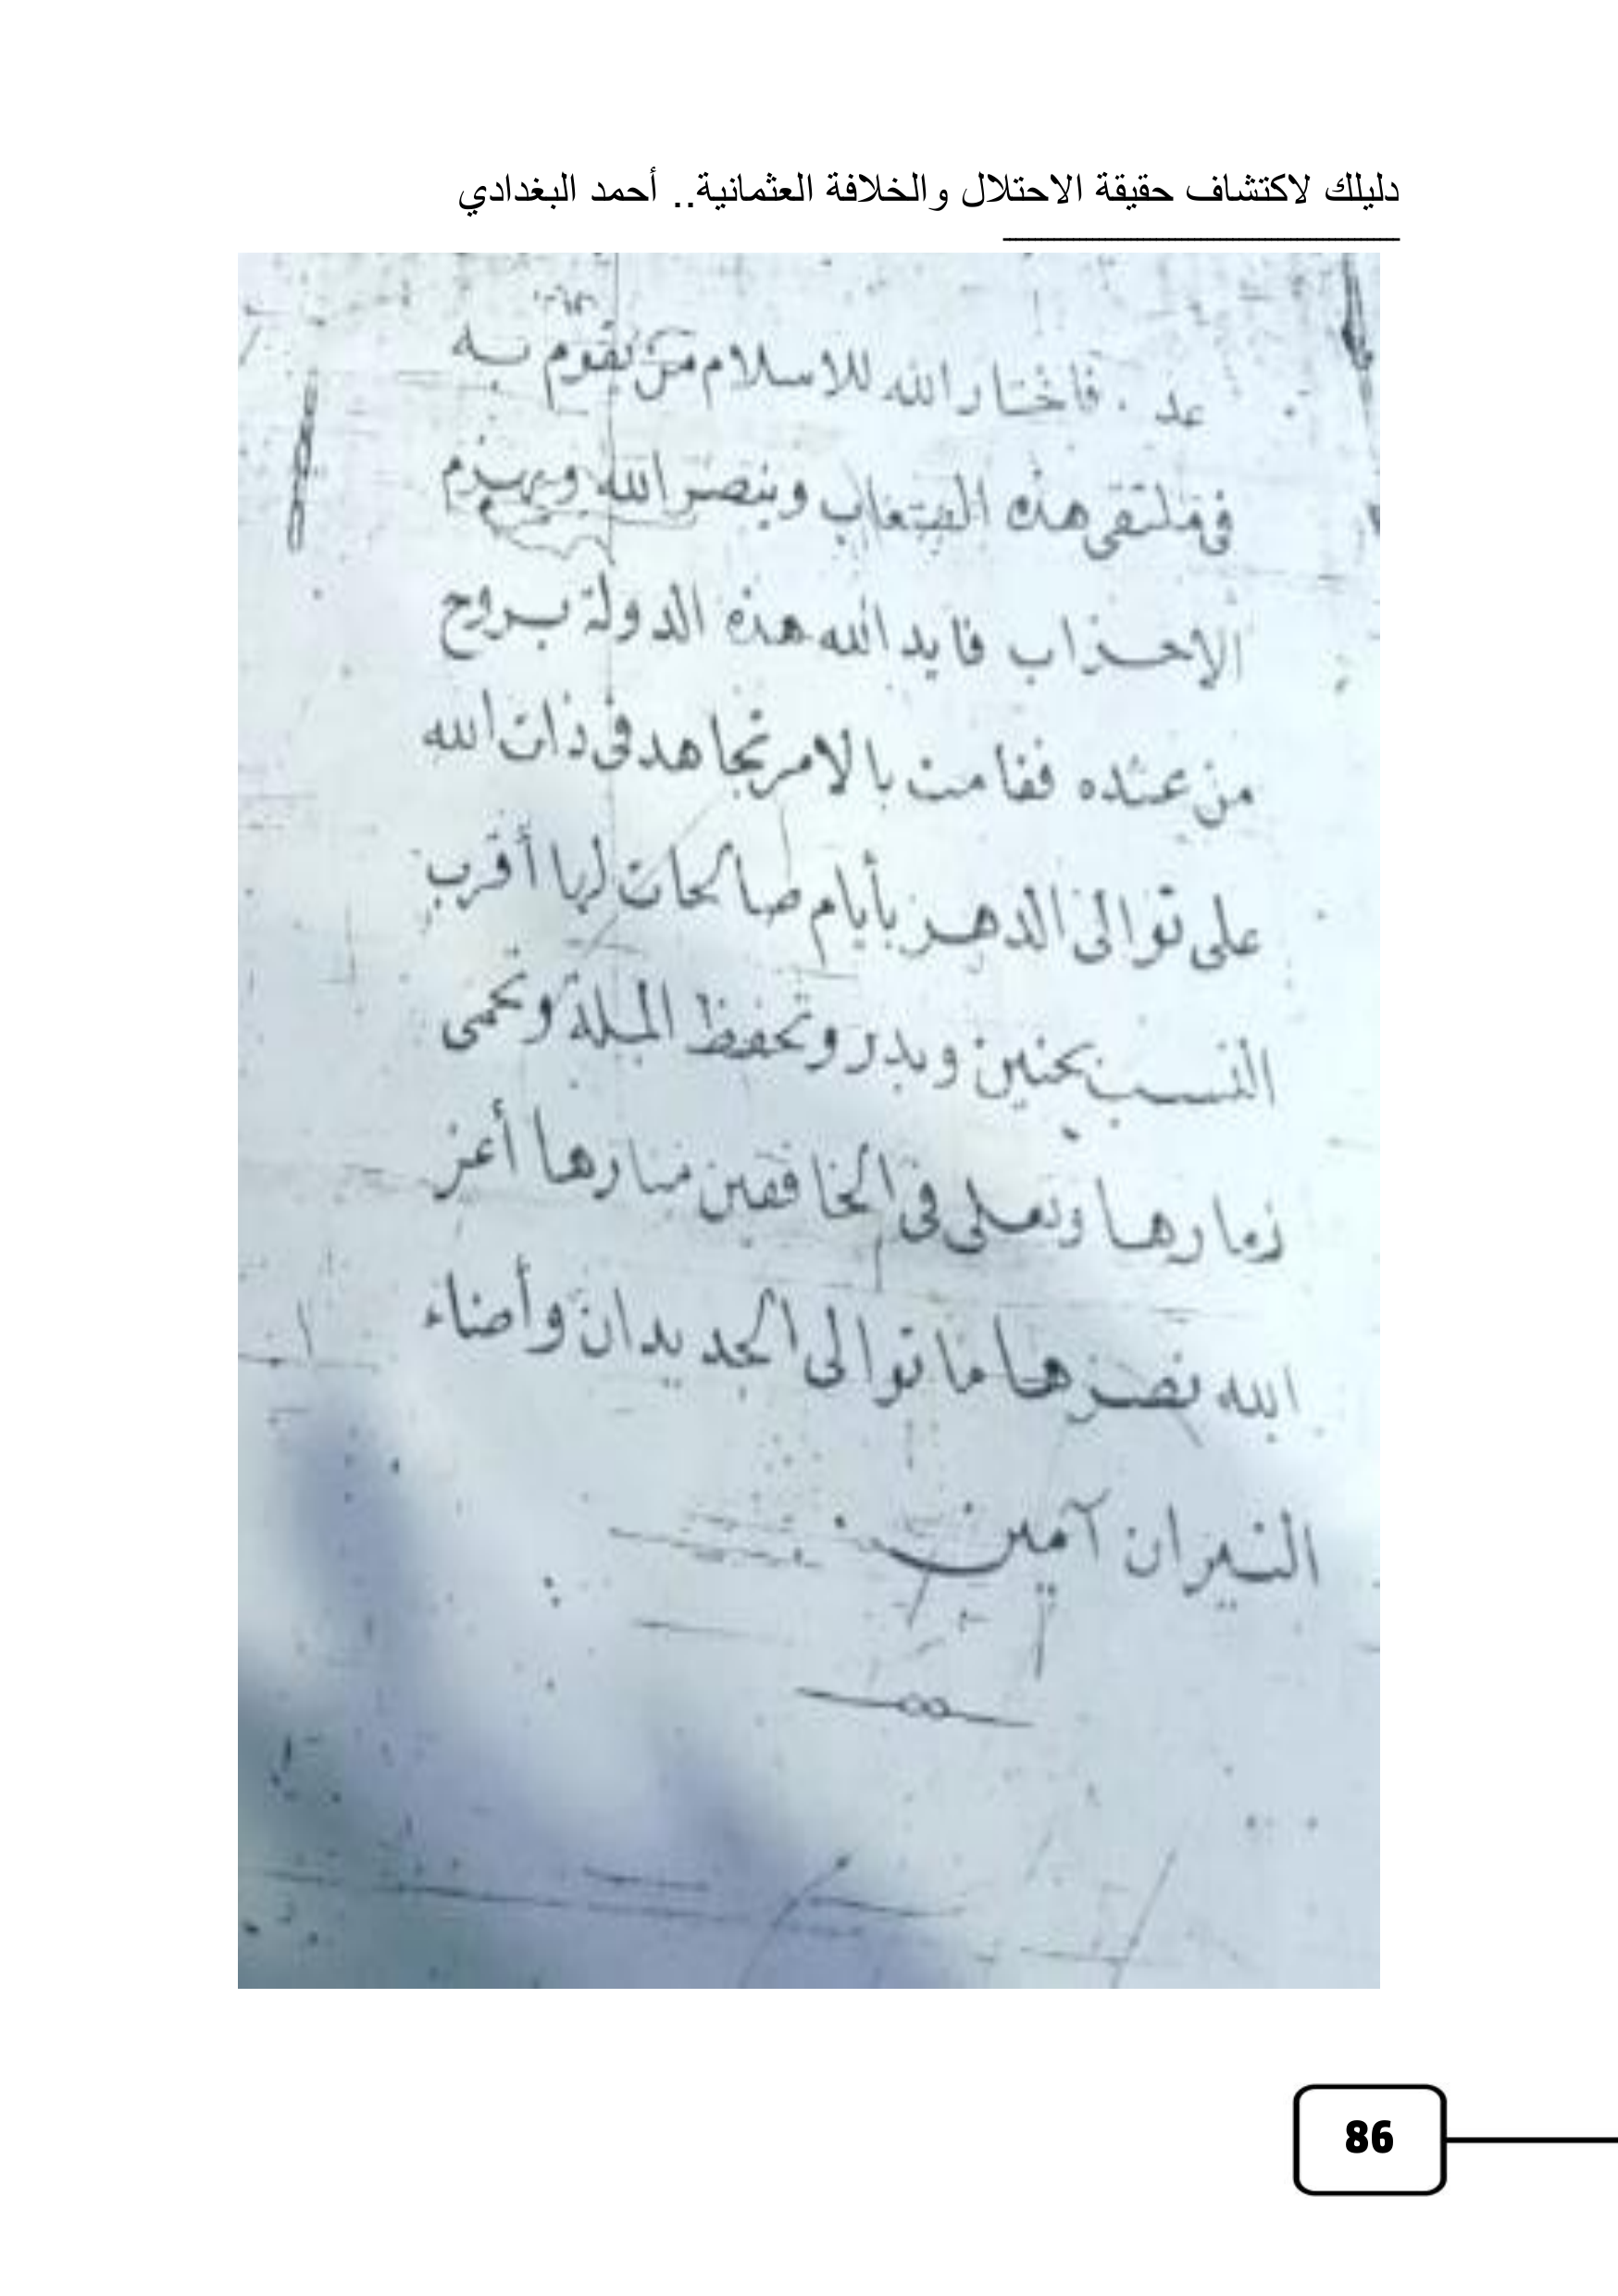 دليلك لاكتشاف حقيقة الاحتلال والخلافة العثمانية.. أحمد البغدادي
عد . فاختار الله للاسلام من تقوم به
فى ملتقى هذه الصعاب وينصر الله ويهزم
الاحزاب فايد الله هذه الدولة بروح
من عنده فقامت بالامر تجاهد فى ذات الله
على توالى الدهر بأيام صالحات لها أقرب
النسب بحنين وبدر وتحفظ الملة وتحمى
زمارها وتعلى فى الخافقين منارها أعز
الله نصرها ما توالى الجديدان وأضاء
النيران آمين .
86